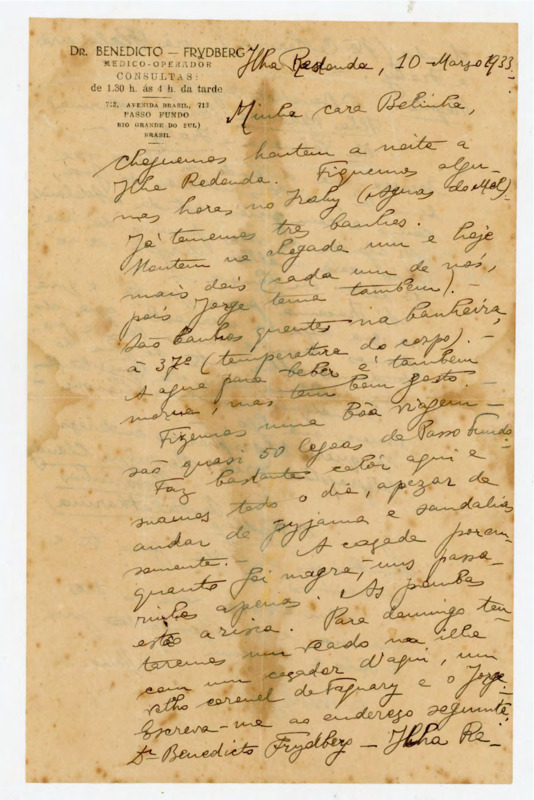 DR. BENEDICTO — FRYDBERG
MEDICO-OPERADOR
CONSULTAS:
de 1.30 h. ás 4 h. da tarde
713, AVENIDA BRASIL, 713
PASSO FUNDO
RIO GRANDE DO SUL)
BRASIL
Ilha Redonda, 10 Março 1933.
Minha cara Belinha,
Cheguemos hontem a noite a
Ilha Redonda. Fiquemos algu-
mas horas no Irahy (Aguas do Mel).
Já tememos tres banhos.
Hontem na chegada um e hoje
mais dois (cada um de nós,
pois Jorge toma também). —
São banhos quentes na banheira,
à 37º (temperatura do corpo). —
A agua para beber é também
morna, mas tem bom gosto. —
Fizemos uma bôa viagem —
são quasi 50 legoas de Passo Fundo.
Faz bastante calôr aqui e
suamos todo o dia, apezar de
andar de pyjama e sandalias
somente. — A caçada por em-
quanto foi magra, uns passa-
rinhos apenas. As pombas
estão arisca. Para domingo ten-
taremos um veado na ilha
com um caçador d'aqui, um
velho coronel de Taquary e o Jorge.
Escreva-me ao endereço seguinte:
Dr Benedicto Frydberg — Ilha Re-